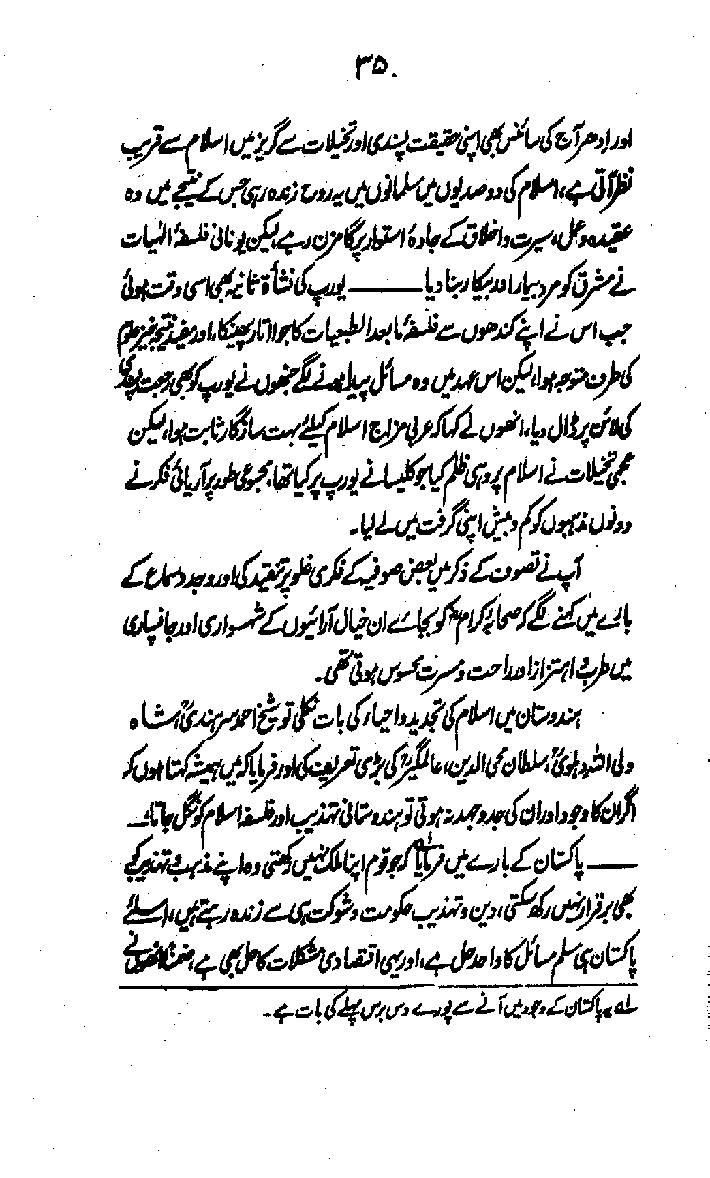 ۳۵
اور ادھر آج کی سائنس بھی اپنی حقیقت پسندی اور تخیلات سے گریز میں اسلام سے قریب
نظر آتی ہے، اسلام کی دو صدیوں میں مسلمانوں میں یہ روح زندہ رہی جس کے نتیجے میں وہ
عقیدہ و عمل، سیرت و اخلاق کے جادۂ استوار پر گامزن رہے، لیکن یونانی فلسفۂ الٰہیات
نے مشرق کو مرد بیمار اور بیکار بنا دیا ——— یورپ کی نشأۃ ثانیہ بھی اسی وقت ہوئی
جب اس نے اپنے کندھوں سے فلسفۂ مابعد الطبعیات کا جوا اتار پھینکا، اور مفید نتیجہ خیز علوم
کی طرف متوجہ ہوا، لیکن اس عہد میں وہ مسائل پیدا ہونے لگے جنھوں نے یورپ کو بھی رجعت پسندی
کی لائن پر ڈال دیا، انھوں نے کہا کہ عربی مزاج اسلام کیلئے بہت سازگار ثابت ہوا، لیکن
عجمی تخیلات نے اسلام پر وہی ظلم کیا جو کلیسا نے یورپ پر کیا تھا، مجموعی طور پر آریائی فکر نے
دونوں مذہبوں کو کم و بیش اپنی گرفت میں لے لیا۔
آپ نے تصوف کے ذکر میں بعض صوفیہ کے فکری غلو پر تنقید کی اور وجد و سماع کے
بارے میں کہنے لگے کہ صحابۂ کرامؓ کو بجائے ان خیال آرائیوں کے شہسواری اور جانسپاری
میں طرب و اہتزاز اور راحت و مسرت محسوس ہوتی تھی۔
ہندوستان میں اسلام کی تجدید و احیاء کی بات نکلی تو شیخ احمد سرہندیؒ، شاہ
ولی اللہ دہلویؒ، سلطان محی الدین عالمگیرؒ کی بڑی تعریف کی اور فرمایا کہ میں ہمیشہ کہتا ہوں کہ
اگر ان کا وجود اور ان کی جدوجہد نہ ہوتی تو ہندوستانی تہذیب اور فلسفہ اسلام کو نگل جاتا۔
——— پاکستان کے بارے میں فرمایا کہ جو قوم اپنا ملک نہیں رکھتی وہ اپنے مذہب و تہذیب کو
بھی برقرار نہیں رکھ سکتی، دین و تہذیب حکومت و شوکت ہی سے زندہ رہتے ہیں، اسلئے
پاکستان ہی مسلم مسائل کا واحد حل ہے، اور یہی اقتصادی مشکلات کا حل بھی ہے، ضمناً انھوں نے
لہ یہ پاکستان کے وجود میں آنے سے پورے دس برس پہلے کی بات ہے۔